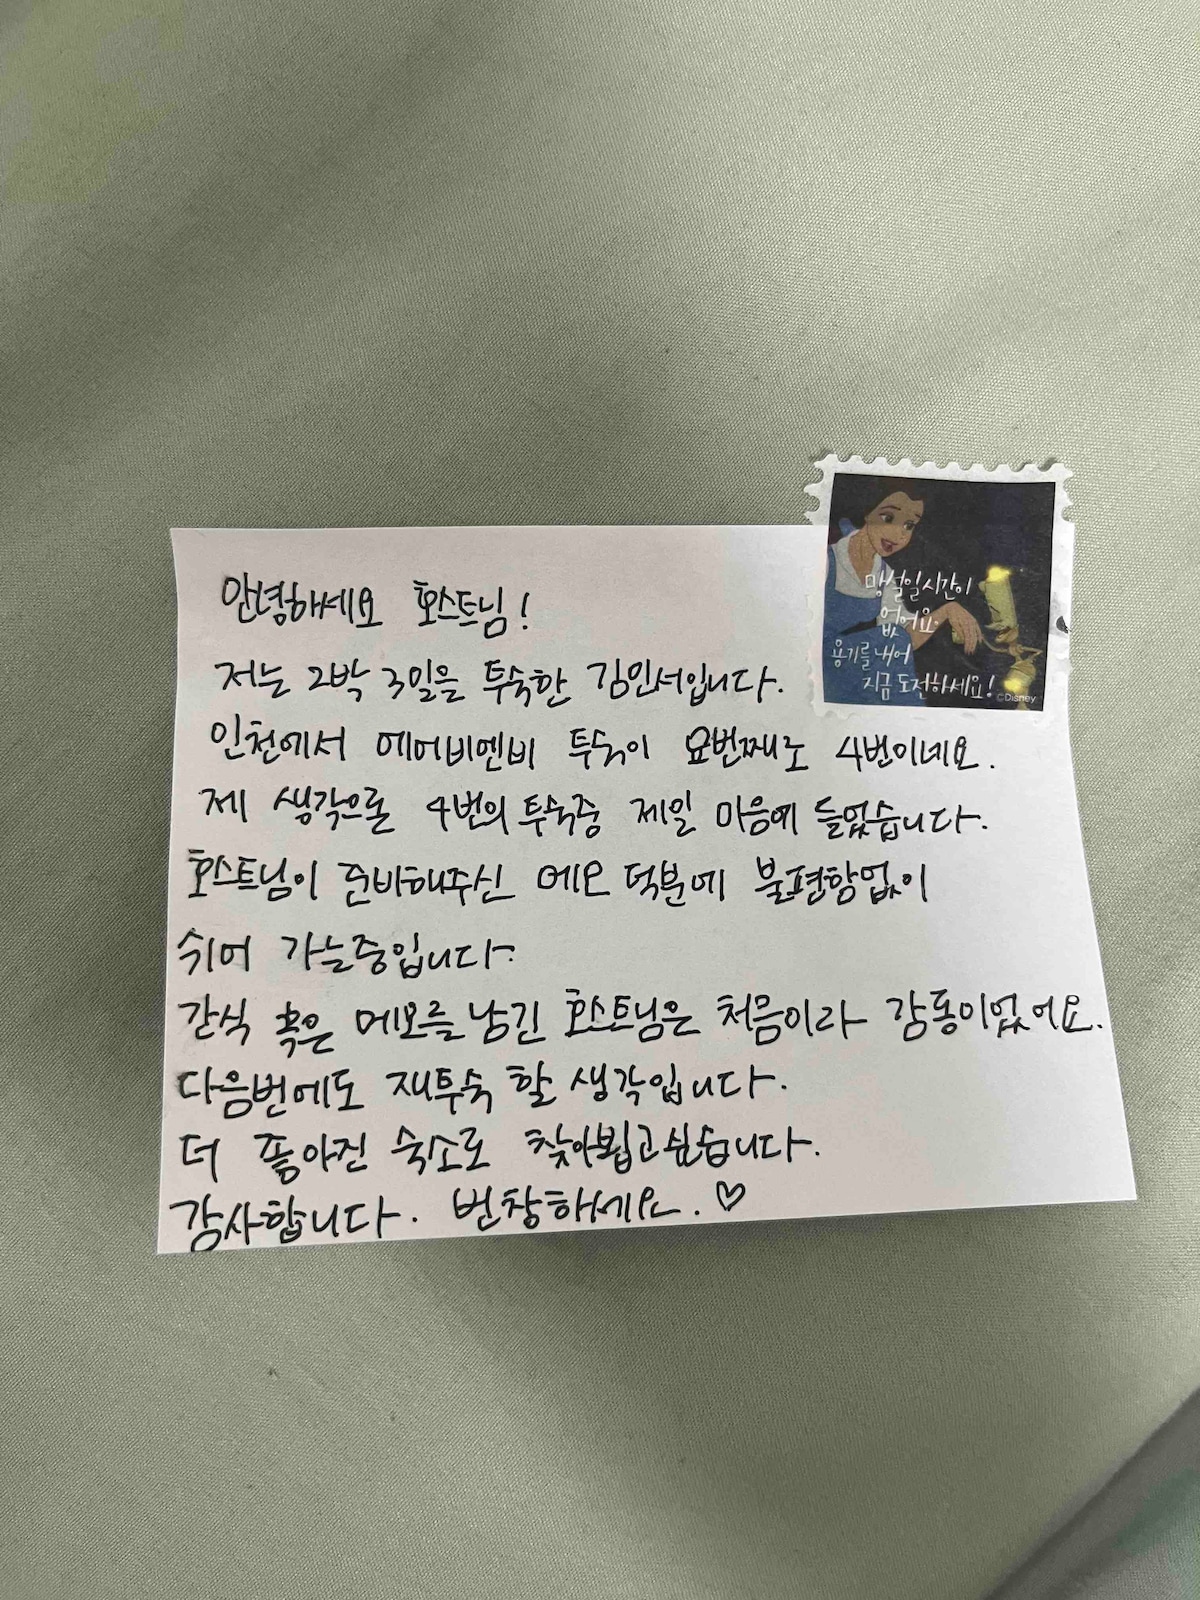 안녕하세요 호스트님!
저는 2박 3일을 투숙한 김민서입니다.
인천에서 에어비엔비 투숙이 요번째로 4번이네요.
제 생각으론 4번의 투숙중 제일 마음에 들었습니다.
호스트님이 준비해주신 메모 덕분에 불편함없이
쉬어 가는중입니다.
간식 혹은 메모를 남긴 호스트님은 처음이라 감동이었어요.
다음번에도 재투숙 할 생각입니다.
더 좋아진 숙소로 찾아뵙고싶습니다.
감사합니다. 번창하세요. ♡
망설일시간이
없어요
용기를 내어
지금 도전하세요!
©Disney